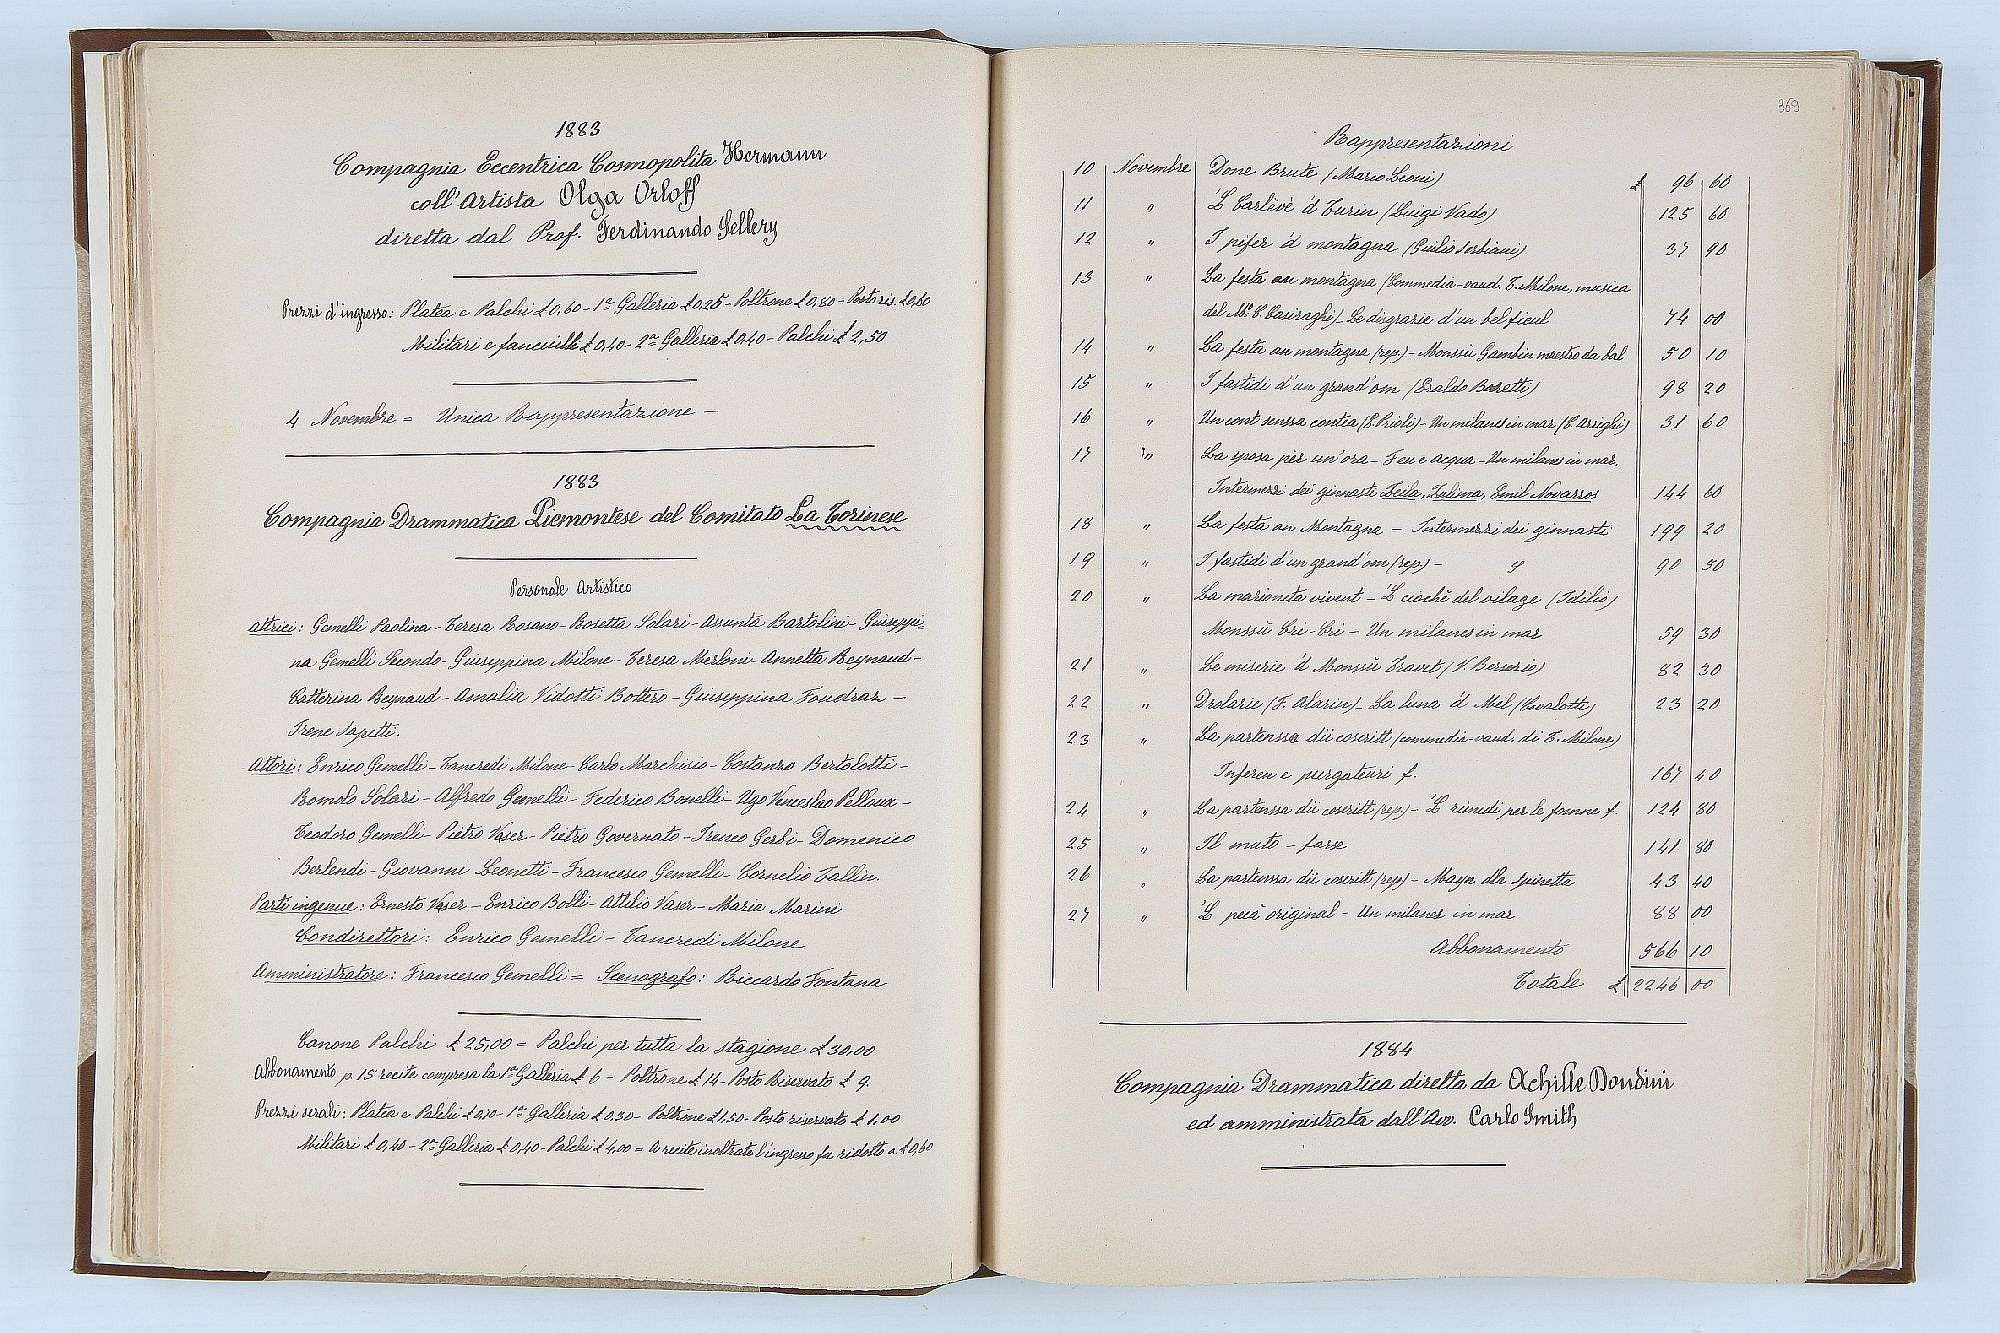 1883
Compagnia Eccentrica Cosmopolita Hermann
coll'Artista Olga Orloff
diretta dal Prof. Ferdinando Sellery
Prezzi d'ingresso: Platea e Palchi £ 0,60 - 1ª Galleria £ 0,25 - Poltrone £ 0,80 - Posto ris. £ 0,60
Militari e fanciulli £ 0,40 - 2ª Galleria £ 0,40 - Palchi £ 2,50
4 Novembre = Unica Rappresentazione -
1883
Compagnia Drammatica Piemontese del Comitato La Torinese
Personale Artistico
Attrici: Gemelli Paolina - Teresa Bosano - Rosetta Solari - Assunta Bartolini - Giuseppi-
na Gemelli Secondo - Giuseppina Milone - Teresa Merloni - Annetta Reynaud -
Catterina Reynaud - Amalia Vidotti Bottero - Giuseppina Foudraz -
Irene Sapetti.
Attori: Enrico Gemelli - Tancredi Milone - Carlo Marchisio - Costanzo Bertolotti -
Romolo Solari - Alfredo Gemelli - Federico Bonelli - Ugo Venceslao Pelloux -
Teodoro Gemelli - Pietro Vaser - Pietro Governato - Ireneo Gerbi - Domenico
Berlendi - Giovanni Leonetti - Francesco Gemelli - Cornelio Tallin.
Parti ingenue: Ernesto Vaser - Enrico Bolli - Attilio Vaser - Maria Marini
Condirettori: Enrico Gemelli - Tancredi Milone
Amministratore: Francesco Gemelli = Scenografo: Riccardo Fontana
Canone Palchi £ 25,00 = Palchi per tutta la stagione £ 30,00
Abbonamento p 15 recite compresa la 1ª Galleria £ 6 - Poltrone £ 14 - Posto Riservato £ 9.
Prezzi serali: Platea e Palchi - 1ª Galleria £ 0,30 - Poltrone £ 1,50 - Posto riservato £ 1,00
Militari £ 0,40 - 2ª Galleria £ 0,40 - Palchi £ 4,00 = A recite inoltrate l'ingresso fu ridotto a £ 0,60
369
Rappresentazioni
10 Novembre Done Brute (Mario Leoni) £ 96 60
11 " 'L Carlevè 'd Turin (Luigi Vado) 125 60
12 " I pifer 'd montagna (Giulio Serbiani) 37 90
13 " La festa an montagna (Commedia-vaud. T. Milone, musica
del M° C. Casiraghi) - Le disgrasie d'un bel ficieul 74 00
14 " La festa an montagna (rep) - Monssù Gambin maestro da bal 50 10
15 " I fastidi d'un grand'om (Eraldo Baretti) 98 20
16 " Un cont senssa contéa (E. Prioli) - Un milanes in mar (C. Arrighi) 31 60
17 " La sposa per un'ora - Feu e acqua - Un milanes in mar.
Intermezzi dei ginnasti Leila, Zulima, Emil Novassos 144 60
18 " La festa an Montagna - Intermezzi dei ginnasti 199 20
19 " I fastidi d'un grand'om (rep) - " 90 50
20 " La marioneta vivent - 'L ciochè del vilage (Idilio)
Monssù Cri-Cri - Un milanes in mar 59 30
21 " Le miserie 'd Monssù Travet (V. Bersezio) 82 30
22 " Drolarie (F. Alarin) - La luna 'd Mel (Covalotti) 23 20
23 " La partenssa dii coscritt (commedia-vaud. di T. Milone)
Inferen e purgateuri f. 167 40
24 " La partenssa dii coscritt (rep) - 'L rimedi per le fomne f. 124 80
25 " Il muto - farse 141 80
26 " La partenssa dii coscritt (rep) - Magna dla Spinetta 43 40
27 " 'L pecà original - Un milanes in mar 88 00
Abbonamento 566 10
Totale £ 2246 00
1884
Compagnia Drammatica diretta da Achille Dondini
ed amministrata dall'Avv. Carlo Smith